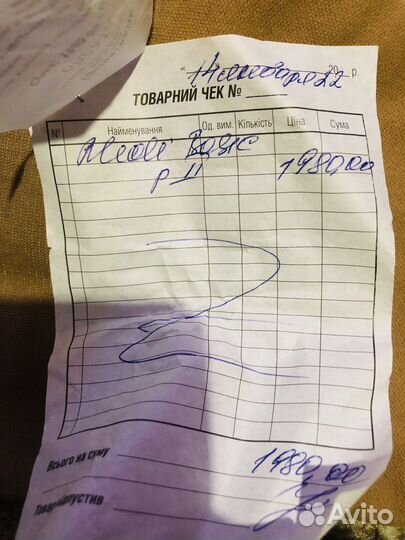 "14 января 2022 р.
ТОВАРНИЙ ЧЕК №
№ Найменування Од. вим. Кількість Ціна Сума
1980,00
р 11
Всього на суму 1980,00
Товар відпустив
Avito